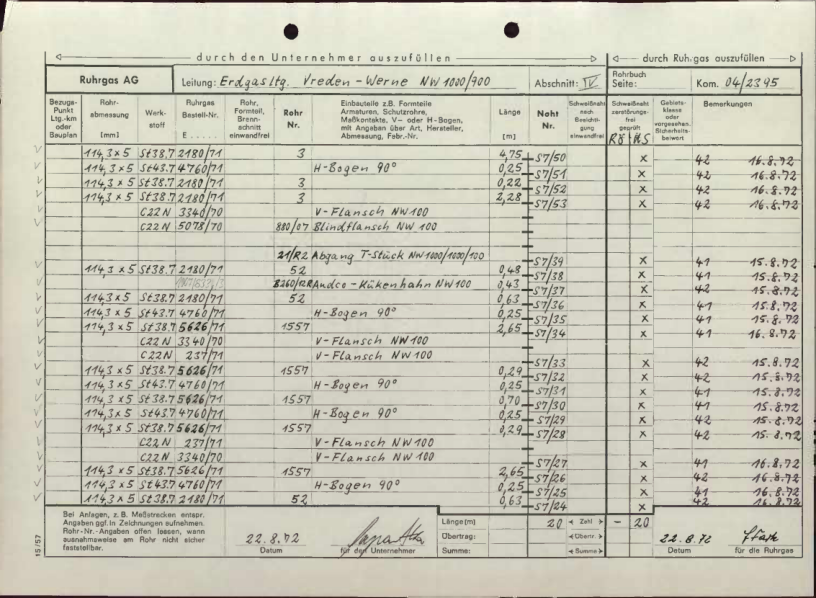 durch den Unternehmer auszufüllen
durch Ruhrgas auszufüllen
Ruhrgas AG Leitung: Erdgasltg. Vreden - Werne NW 1000/900 Abschnitt: IV Rohrbuch Seite: Kom. 04/2395
Bezugs-Punkt Ltg.-km oder Bauplan
Rohr-abmessung [mm]
Werk-stoff
Ruhrgas Bestell-Nr. E . . . . .
Rohr, Formteil, Brenn-schnitt einwandfrei
Rohr Nr.
Einbauteile z.B. Formteile Armaturen, Schutzrohre, Maßkontakte, V- oder H-Bogen, mit Angaben über Art, Hersteller, Abmessung, Fabr.-Nr.
Länge [m]
Naht Nr.
Schweißnaht nach Besichti-gung einwandfrei
Schweißnaht zerstörungs-frei geprüft Rö US
Gebiets-klasse oder vorgesehen. Sicherheits-beiwert
Bemerkungen
114,3 x 5 St38.7 2180/71 3 4,75 S7/50 x 42 16.8.72
114,3 x 5 St43.7 4760/71 H-Bogen 90° 0,25 S7/51 x 41 16.8.72
114,3 x 5 St38.7 2180/71 3 0,22 S7/52 x 42 16.8.72
114,3 x 5 St38.7 2180/71 3 2,28 S7/53 x 42 16.8.72
C22N 3340/70 V-Flansch NW 100
C22N 5078/70 880/07 Blindflansch NW 100
21/R2 Abgang T-Stück NW 1000/1000/100 S7/39 x 41 15.8.72
114,3 x 5 St38.7 2180/71 52 0,48 S7/38 x 41 15.8.72
Andco - Kükenhahn NW 100 0,43 S7/37 x 42 15.8.72
114,3 x 5 St38.7 2180/71 52 0,63 S7/36 x 41 15.8.72
114,3 x 5 St43.7 4760/71 H-Bogen 90° 0,25 S7/35 x 41 15.8.72
114,3 x 5 St38.7 5626/71 1557 2,65 S7/34 x 41 16.8.72
C22N 3340/70 V-Flansch NW 100
C22N 237/71 V-Flansch NW 100
S7/33 x 42 15.8.72
114,3 x 5 St38.7 5626/71 1557 0,29 S7/32 x 42 15.8.72
114,3 x 5 St43.7 4760/71 H-Bogen 90° 0,25 S7/31 x 41 15.8.72
114,3 x 5 St38.7 5626/71 1557 0,70 S7/30 x 41 15.8.72
114,3 x 5 St43.7 4760/71 H-Bogen 90° 0,25 S7/29 x 42 15.8.72
114,3 x 5 St38.7 5626/71 1557 0,29 S7/28 x 42 15.8.72
C22N 237/71 V-Flansch NW 100
C22N 3340/70 V-Flansch NW 100
S7/27 x 41 16.8.72
114,3 x 5 St38.7 5626/71 1557 2,65 S7/26 x 42 16.8.72
114,3 x 5 St43.7 4760/71 H-Bogen 90° 0,25 S7/25 x 41 16.8.72
114,3 x 5 St38.7 2180/71 52 0,63 S7/24 x 42 16.8.72
Bei Anlagen, z. B. Meßstrecken entspr.
Angaben ggf. in Zeichnungen aufnehmen.
Rohr-Nr.-Angaben offen lassen, wann
ausnahmsweise am Rohr nicht sicher
feststellbar.
22.8.72 Datum
für den Unternehmer
Länge (m) 20 Zahl - 20
Übertrag: Übertr.
Summe: Summe
22.8.72 Datum
für die Ruhrgas
15/57